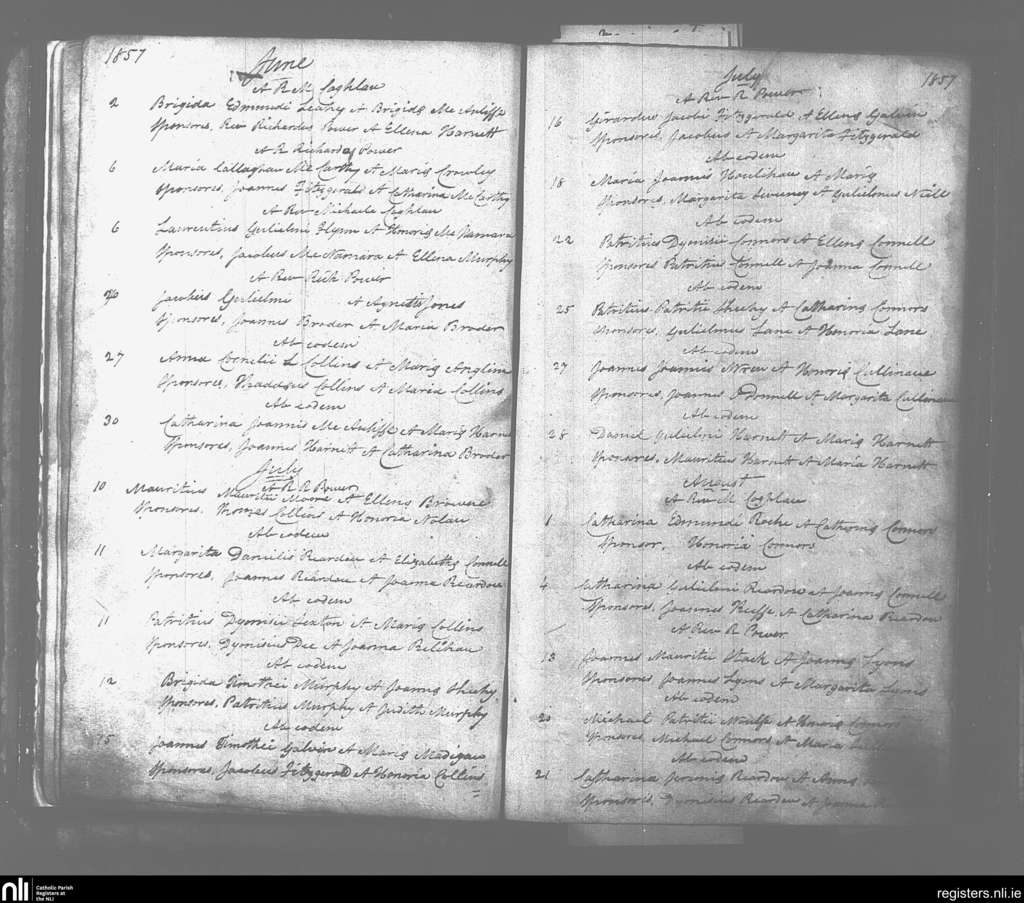 1857
June
A R M Coghlan
2 Brigida Edmundi Leahy A Brigidæ Mc Auliffe
Sponsores, Rev Richardus Power A Ellena Harnett
A R Richardo Power
6 Maria Callaghan Mc Carthy A Mariæ Crowley
Sponsores, Joannes Fitzgerald A Catharina McCarthy
A Rev Michaele Coghlan
6 Laurentius Gulielmi Flynn A Honoræ Mc Namara
Sponsores, Jacobus McNamara A Ellena Murphy
A Rev Rich Power
Jacobus Gulielmi A Agnetis Jones
Sponsores, Joannes Broder A Maria Broder
Ab eodem
27 Anna Cornelii Collins A Mariæ Anglim
Sponsores, Thaddæus Collins A Maria Collins
Ab eodem
30 Catharina Joannis Mc Auliffe A Mariæ
Sponsores, Joannes Harnett A Catharina Broder
July
A R R Power
10 Mauritius Mauritii Moore A Ellenæ Browne
Sponsores, Thomas Collins A Honoria Nolan
Ab eodem
11 Margarita Danielis Reardon A Elizabethæ Connell
Sponsores, Joannes Reardon A Joanna Reardon
Ab eodem
11 Patritius Dyonisii Sexton A Mariæ Collins
Sponsores, Dyonisius Dee A Joanna Relihan
Ab eodem
12 Brigida Timothei Murphy A Joannæ Sheehy
Sponsores, Patritius Murphy A Judith Murphy
Ab eodem
15 Joannes Timothei Galvin A Mariæ Madigan
Sponsores, Jacobus Fitzgerald A Honoria Collins
1857
July
A Rev R Power
16 Girardus Jacobi Fitzgerald A Ellenæ Galvin
Sponsores, Jacobus A Margarita Fitzgerald
Ab eodem
18 Maria Joannis Houlihan A Mariæ
Sponsores, Margarita Sweeney A Gulielmus Neill
Ab eodem
22 Patritius Dyonisii Connors A Ellenæ Connell
Sponsores Patritius Connell A Joanna Connell
Ab eodem
25 Patritius Patritii Sheehy A Catharinæ Connors
Sponsores, Gulielmus Lane A Honoria Lane
Ab eodem
27 Joannes Joannis A Honoriæ Cullinane
Sponsores, Joannes O Donnell A Margarita Cullinane
Ab eodem
28 Daniel Gulielmi Harnett A Mariæ Harnett
Sponsores, Mauritius Harnett A Maria Harnett
August
A Rev M Coghlan
1 Catharina Edmundi Roche A Catharinæ Connors
Sponsor, Honoria Connors
Ab eodem
4 Catharina Gulielmi Reardon A Joannæ Connell
Sponsores, Joannes A Catharina Reardon
A Rev R Power
13 Joannes Mauritii Stack A Joannæ Lyons
Sponsores Joannes Lyons A Margarita Lyons
Ab eodem
20 Michael Patritii A Honoriæ Connors
Sponsores, Michael Connors A Maria
Ab eodem
21 Catharina Jeremiæ Reardon A Annæ
Sponsores, Dyonisius Reardon A Joanna
nli
Catholic Parish
Registers at
the NLI
registers.nli.ie